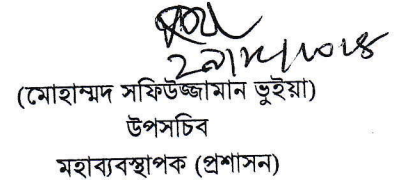 (মোহাম্মদ সফিউজ্জামান ভুইয়া)
উপসচিব
মহাব্যবস্থাপক (প্রশাসন)